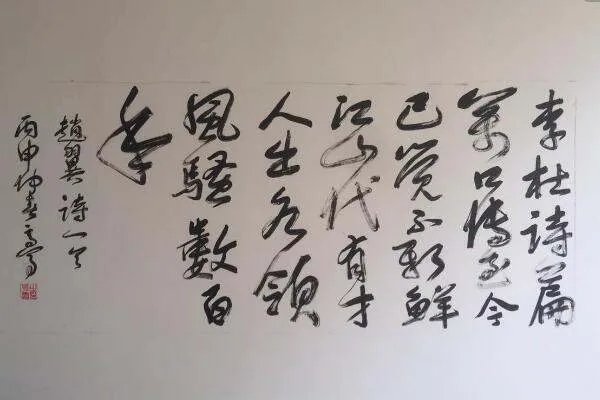 李杜詩篇
萬口傳至今
已覺不新鮮
江山代有才
人出各領
風騷數百
年
趙翼詩一首
丙申仲春